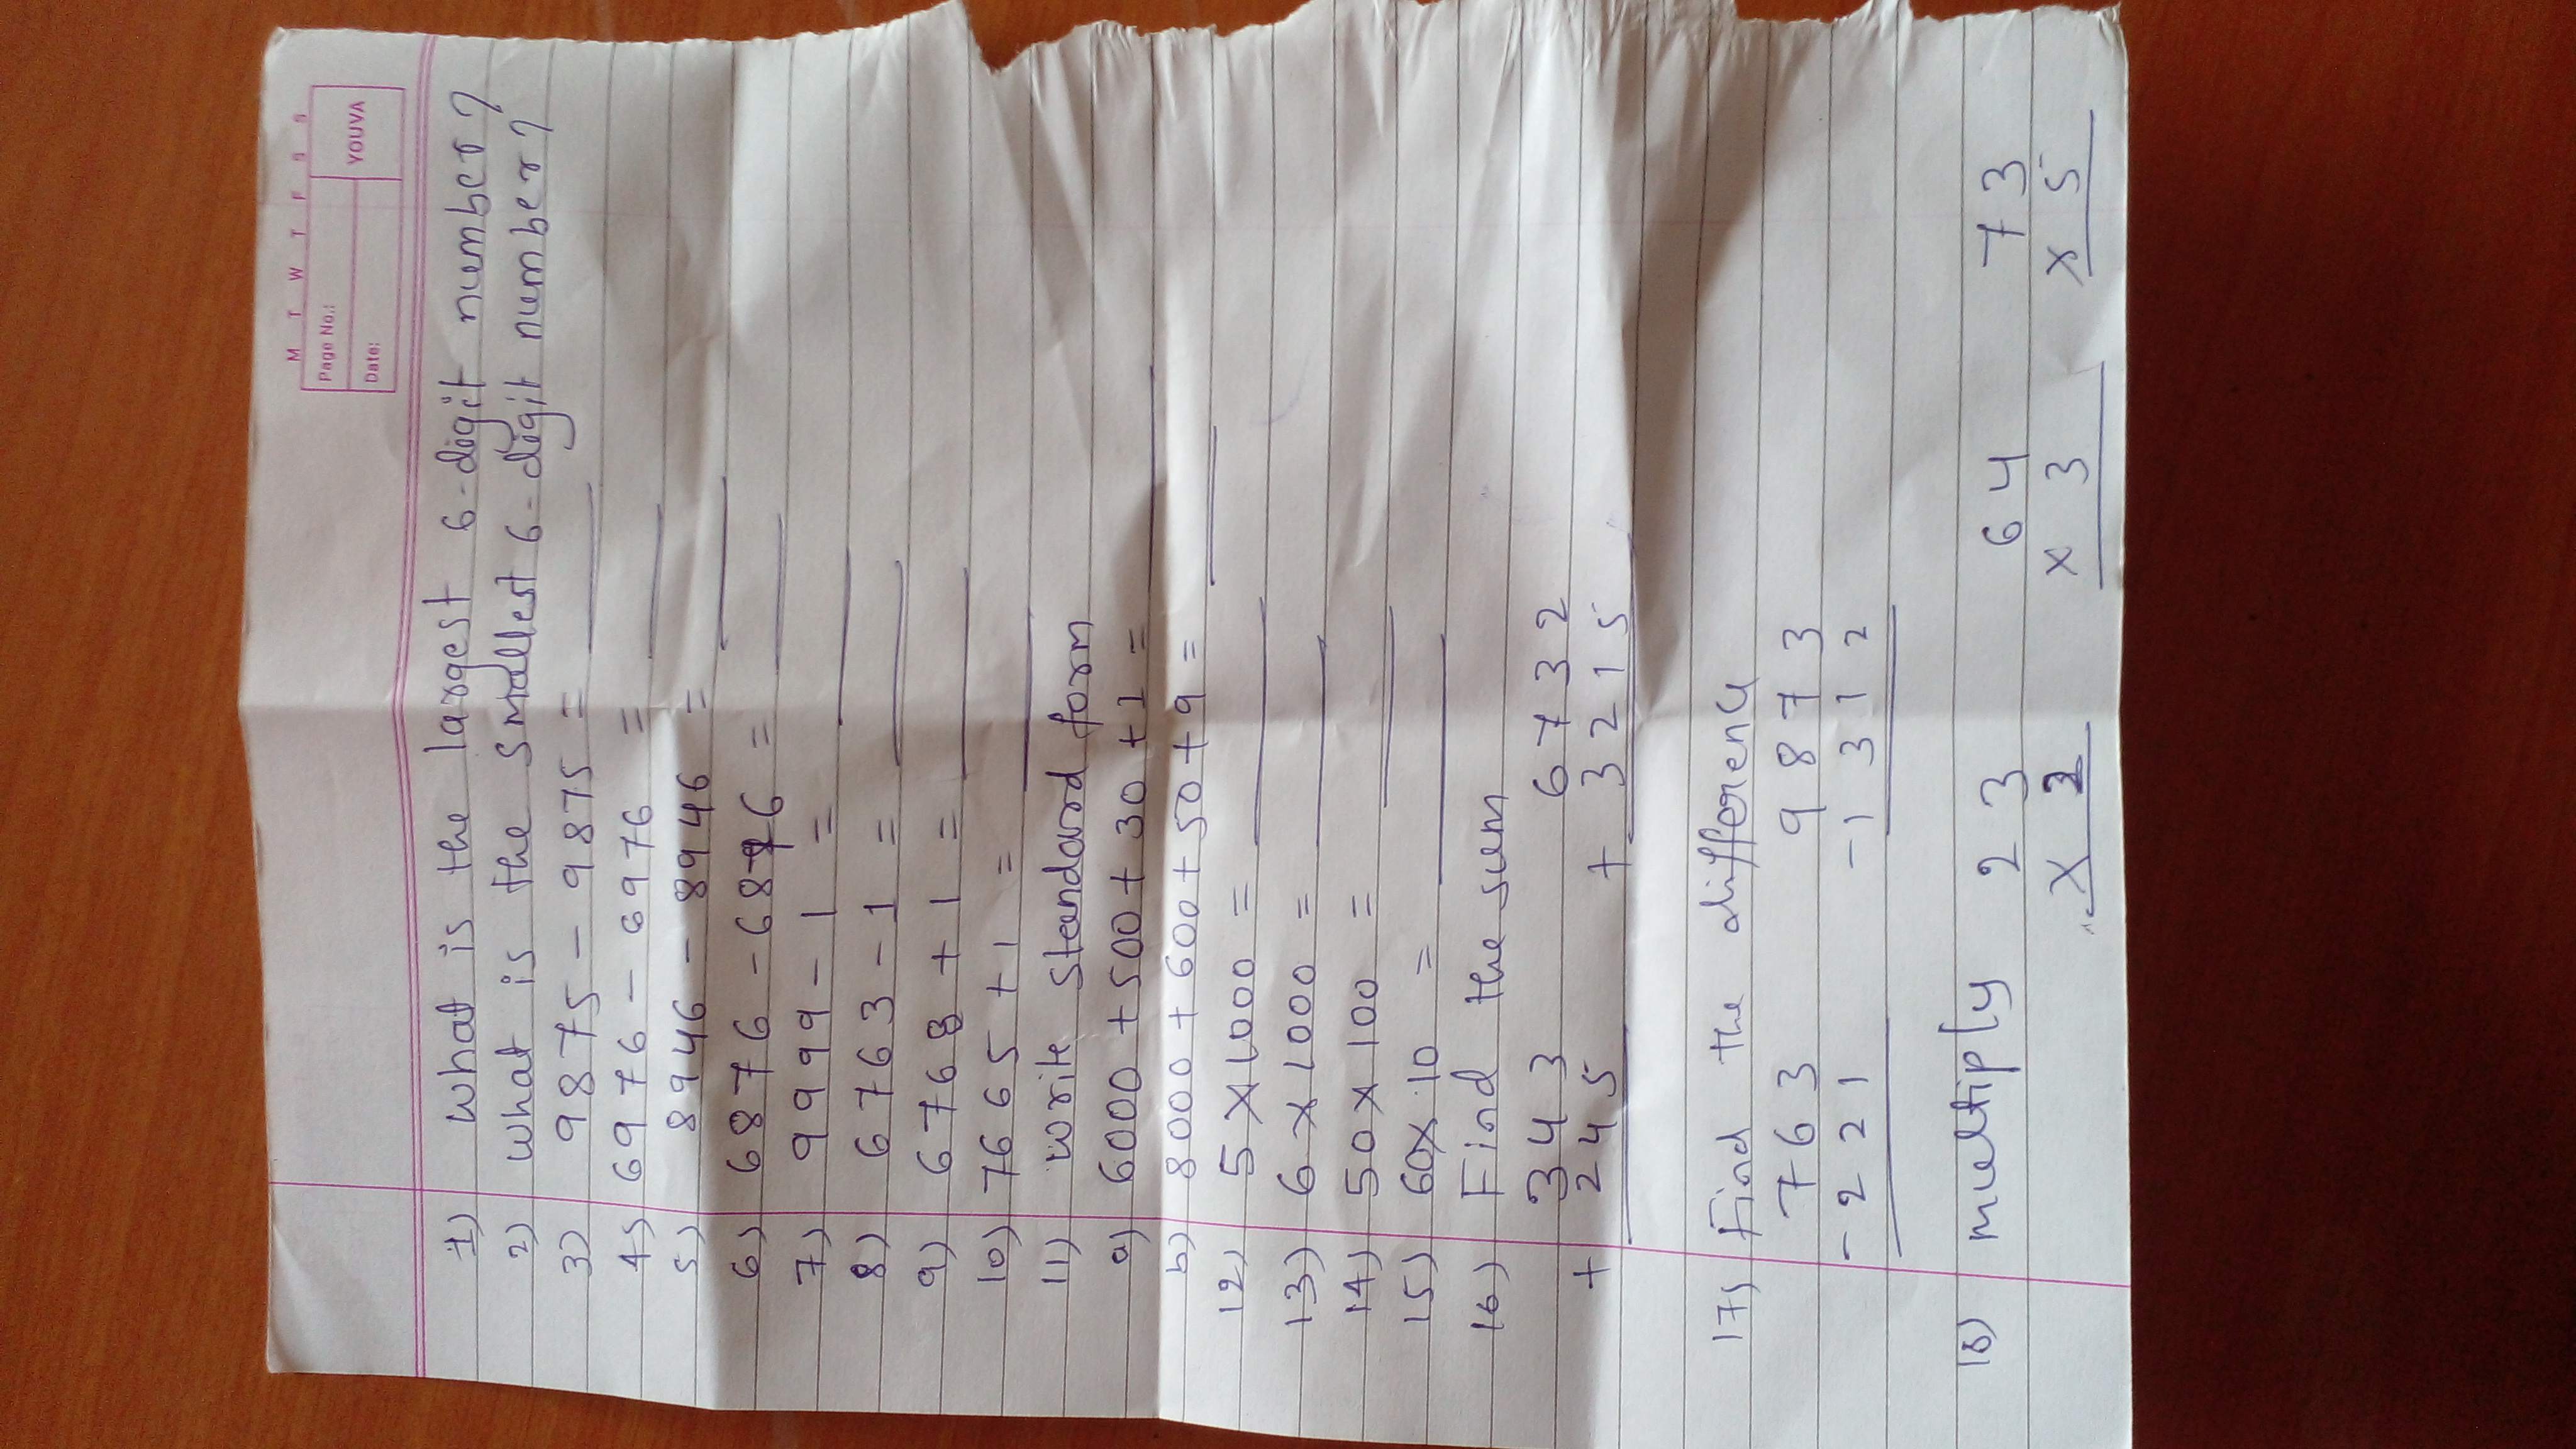 M T W T F S S
Page No.:
Date:
YOUVA
1) What is the largest 6-digit number?
2) what is the smallest 6-digit number?
3) 9875 - 9875 =
4) 6976 - 6976 =
5) 8946 - 8946 =
6) 6876 - 6876 =
7) 9999 - 1 =
8) 6763 - 1 =
9) 6768 + 1 =
10) 7665 + 1 =
11) write standard form
a) 6000 + 500 + 30 + 1 =
b) 8000 + 600 + 50 + 9 =
12) 5 x 1000 =
13) 6 x 1000 =
14) 50 x 100 =
15) 60x 10 =
16) Find the sum
343 6732
+ 245 + 3215
17) Find the difference
763 9873
- 221 - 1312
18) multiply 23 64 73
x 2 x 3 x 5